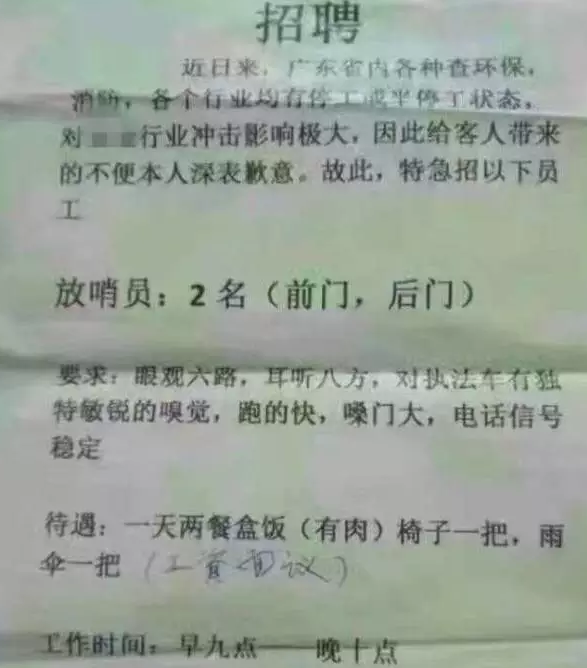 招聘
近日来，广东省内各种查环保，
消防，各个行业均有停工或半停工状态，
对行业冲击影响极大，因此给客人带来
的不便本人深表歉意。故此，特急招以下员
工
放哨员：2 名（前门，后门）
要求：眼观六路，耳听八方，对执法车有独
特敏锐的嗅觉，跑的快，嗓门大，电话信号
稳定
待遇：一天两餐盒饭（有肉）椅子一把，雨
伞一把（工资面议）
工作时间：早九点——晚十点